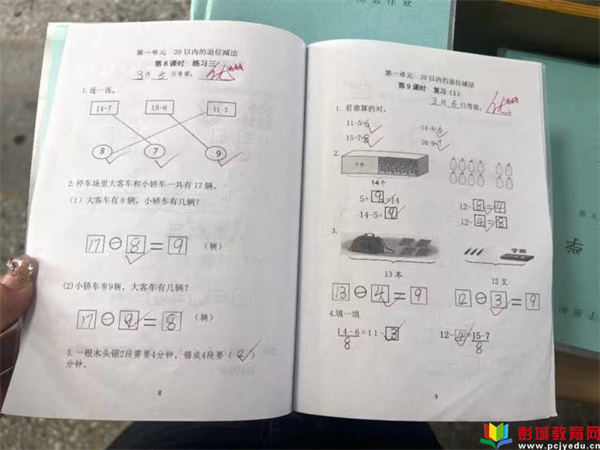 第一单元 20以内的退位减法
第8课时 练习三
3月5日等第: 优
1.连一连。
14-7 15-6 11-3
8 7 9
2.停车场里大客车和小轿车一共有17辆。
(1)大客车有8辆,小轿车有几辆?
17-8=9(辆)
(2)小轿车有9辆,大客车有几辆?
17-9=8(辆)
3.一根木头锯2段需要4分钟,锯成4段要( )
分钟。
8
第一单元 20以内的退位减法
第9课时 复习(1)
3月6日等第: 优
1.看谁算的对。
11-5=6 14-8=6
15-7=8 16-9=7
2.
14个
5+9=14 12-8=4
14-5=9 12-4=8
3.
13本 12支
13-4=9 12-3=9
4.填一填
14-6=11-3 12-4=15-7
8 8
9
彭城教育网
www.pcjyedu.cn